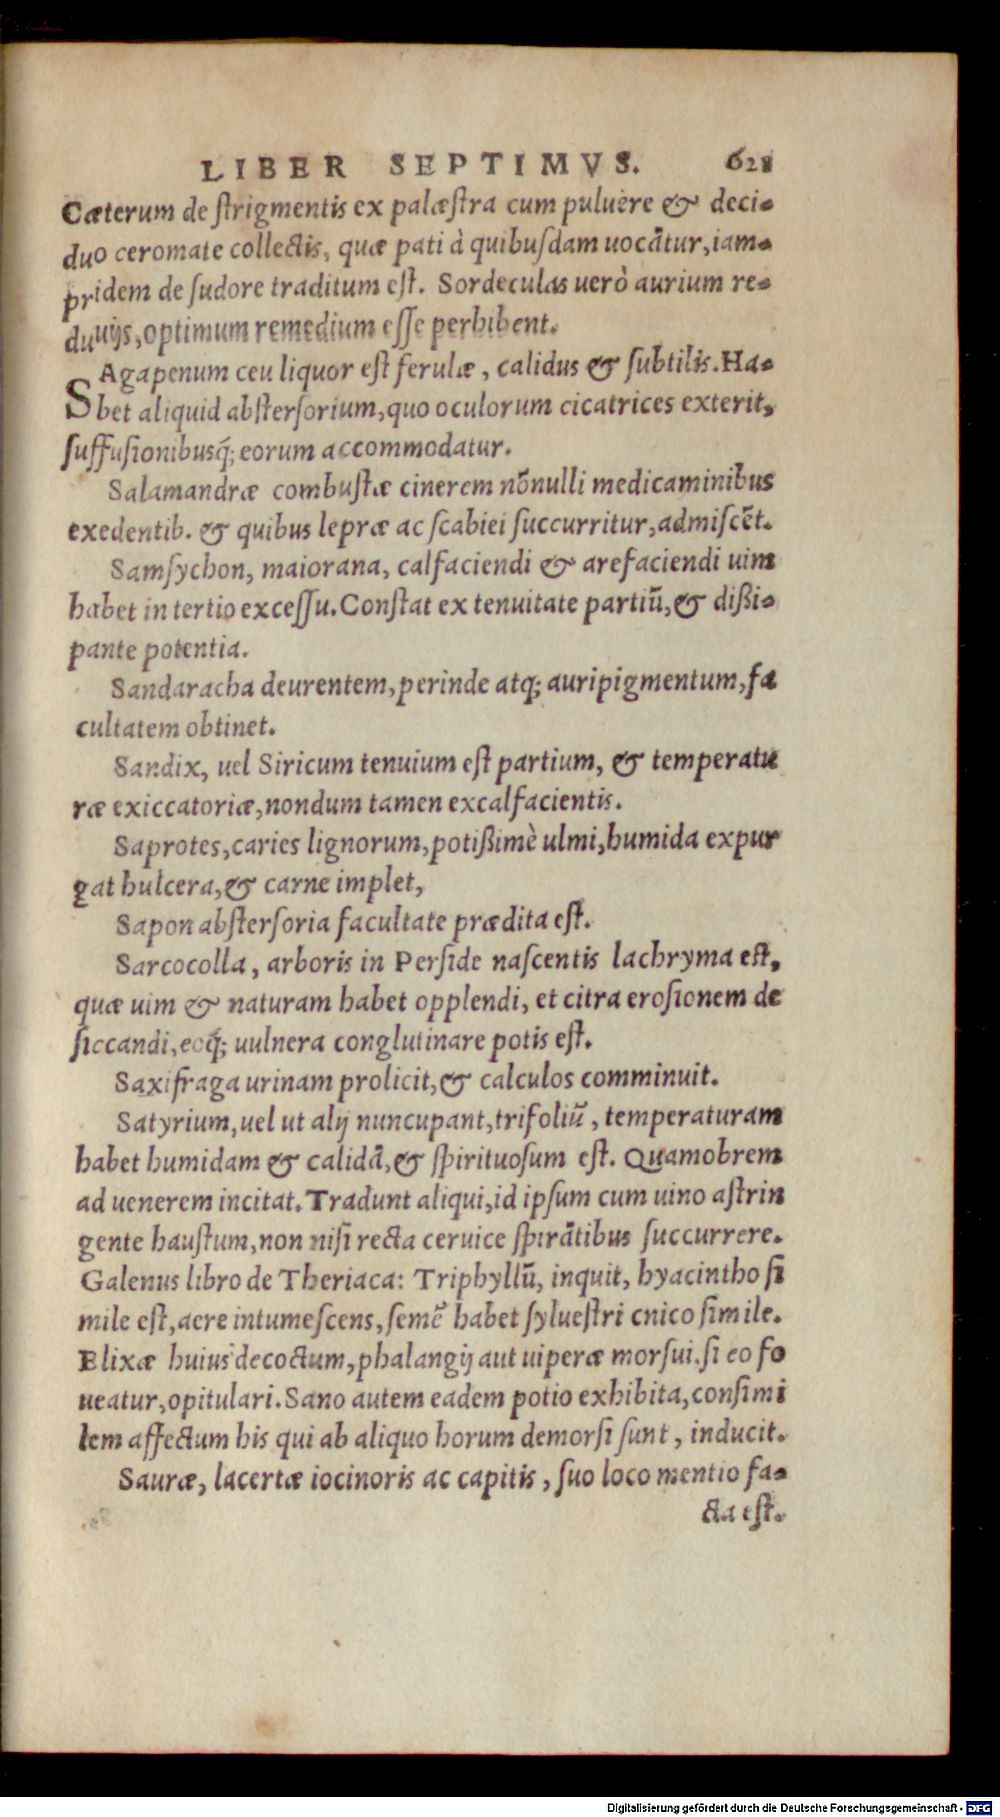 LIBER SEPTIMVS. 621
Cæterum de ſtrigmentis ex palæſtra cum puluère & deci-
duo ceromate collectis, quæ pati à quibuſdam uocātur, iam-
pridem de ſudore traditum eſt. Sordeculas uerò aurium re-
duuijs, optimum remedium eſſe perhibent.
SAgapenum ceu liquor eſt ferulæ, calidus & ſubtilis. Ha-
bet aliquid abſterſorium, quo oculorum cicatrices exterit,
ſuffuſionibusq́; eorum accommodatur.
Salamandræ combuſtæ cinerem nōnulli medicaminibus
exedentib. & quibus lepræ ac ſcabiei ſuccurritur, admiſcēt.
Samſychon, maiorana, calfaciendi & arefaciendi uim
habet in tertio exceſſu. Conſtat ex tenuitate partiū, & dißi-
pante potentia.
Sandaracha deurentem, perinde atq; auripigmentum, fa
cultatem obtinet.
Sandix, uel Siricum tenuium eſt partium, & temperatu
ræ exiccatoriæ, nondum tamen excalfacientis.
Saprotes, caries lignorum, potißimè ulmi, humida expur
gat hulcera, & carne implet,
Sapon abſterſoria facultate prædita eſt.
Sarcocolla, arboris in Perſide naſcentis lachryma eſt,
quæ uim & naturam habet opplendi, et citra eroſionem de
ſiccandi, eoq́; uulnera conglutinare potis eſt.
Saxifraga urinam prolicit, & calculos comminuit.
Satyrium, uel ut alij nuncupant, trifoliū, temperaturam
habet humidam & calidā, & ſpirituoſum eſt. Quamobrem
ad uenerem incitat. Tradunt aliqui, id ipſum cum uino aſtrin
gente hauſtum, non niſi recta ceruice ſpirātibus ſuccurrere.
Galenus libro de Theriaca: Triphyllū, inquit, hyacintho ſi
mile eſt, aere intumeſcens, ſemē habet ſylueſtri cnico ſimile.
Elixæ huius decoctum, phalangij aut uiperæ morſui, ſi eo fo
ueatur, opitulari. Sano autem eadem potio exhibita, conſimi
lem affectum his qui ab aliquo horum demorſi ſunt, inducit.
Sauræ, lacertæ iocinoris ac capitis, ſuo loco mentio fa-
cta eſt.
Digitalisierung gefördert durch die Deutsche Forschungsgemeinschaft - DFG